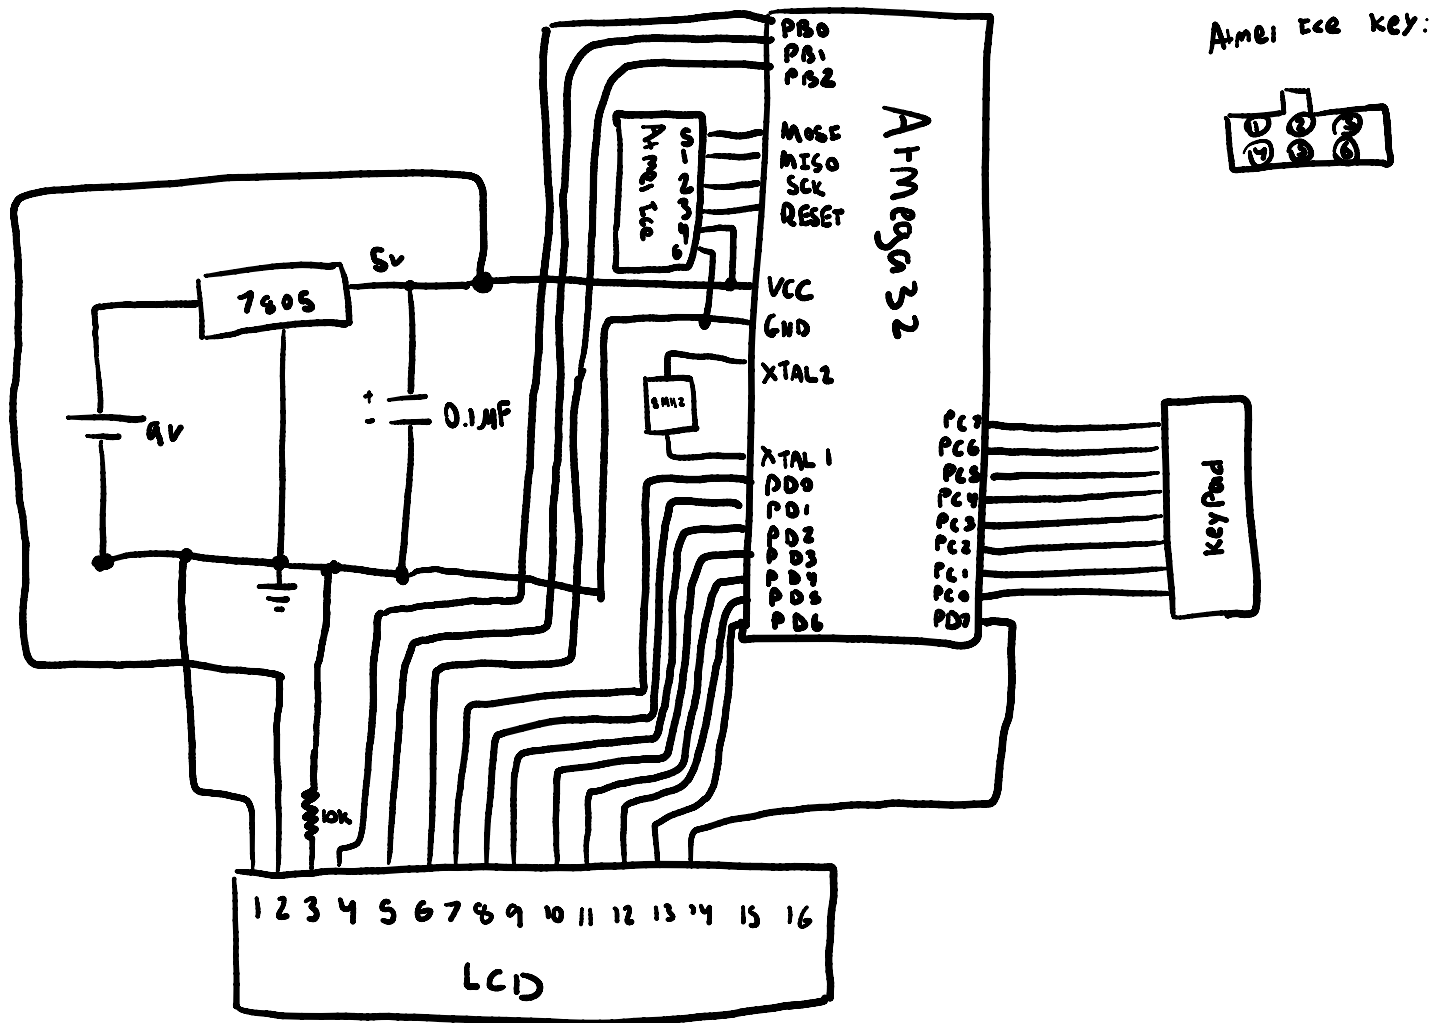 Atmel Ice Key:
1 2 3
4 5 6
PB0
PB1
PB2
Atmega32
Atmel Ice
5
1
2
3
4
6
MOSI
MISO
SCK
RESET
VCC
GND
XTAL2
8MHz
XTAL1
PD0
PD1
PD2
PD3
PD4
PD5
PD6
PC7
PC6
PC5
PC4
PC3
PC2
PC1
PC0
PD7
KeyPad
5v
7805
9v
+
-
0.1µF
10K
1 2 3 4 5 6 7 8 9 10 11 12 13 14 15 16
LCD